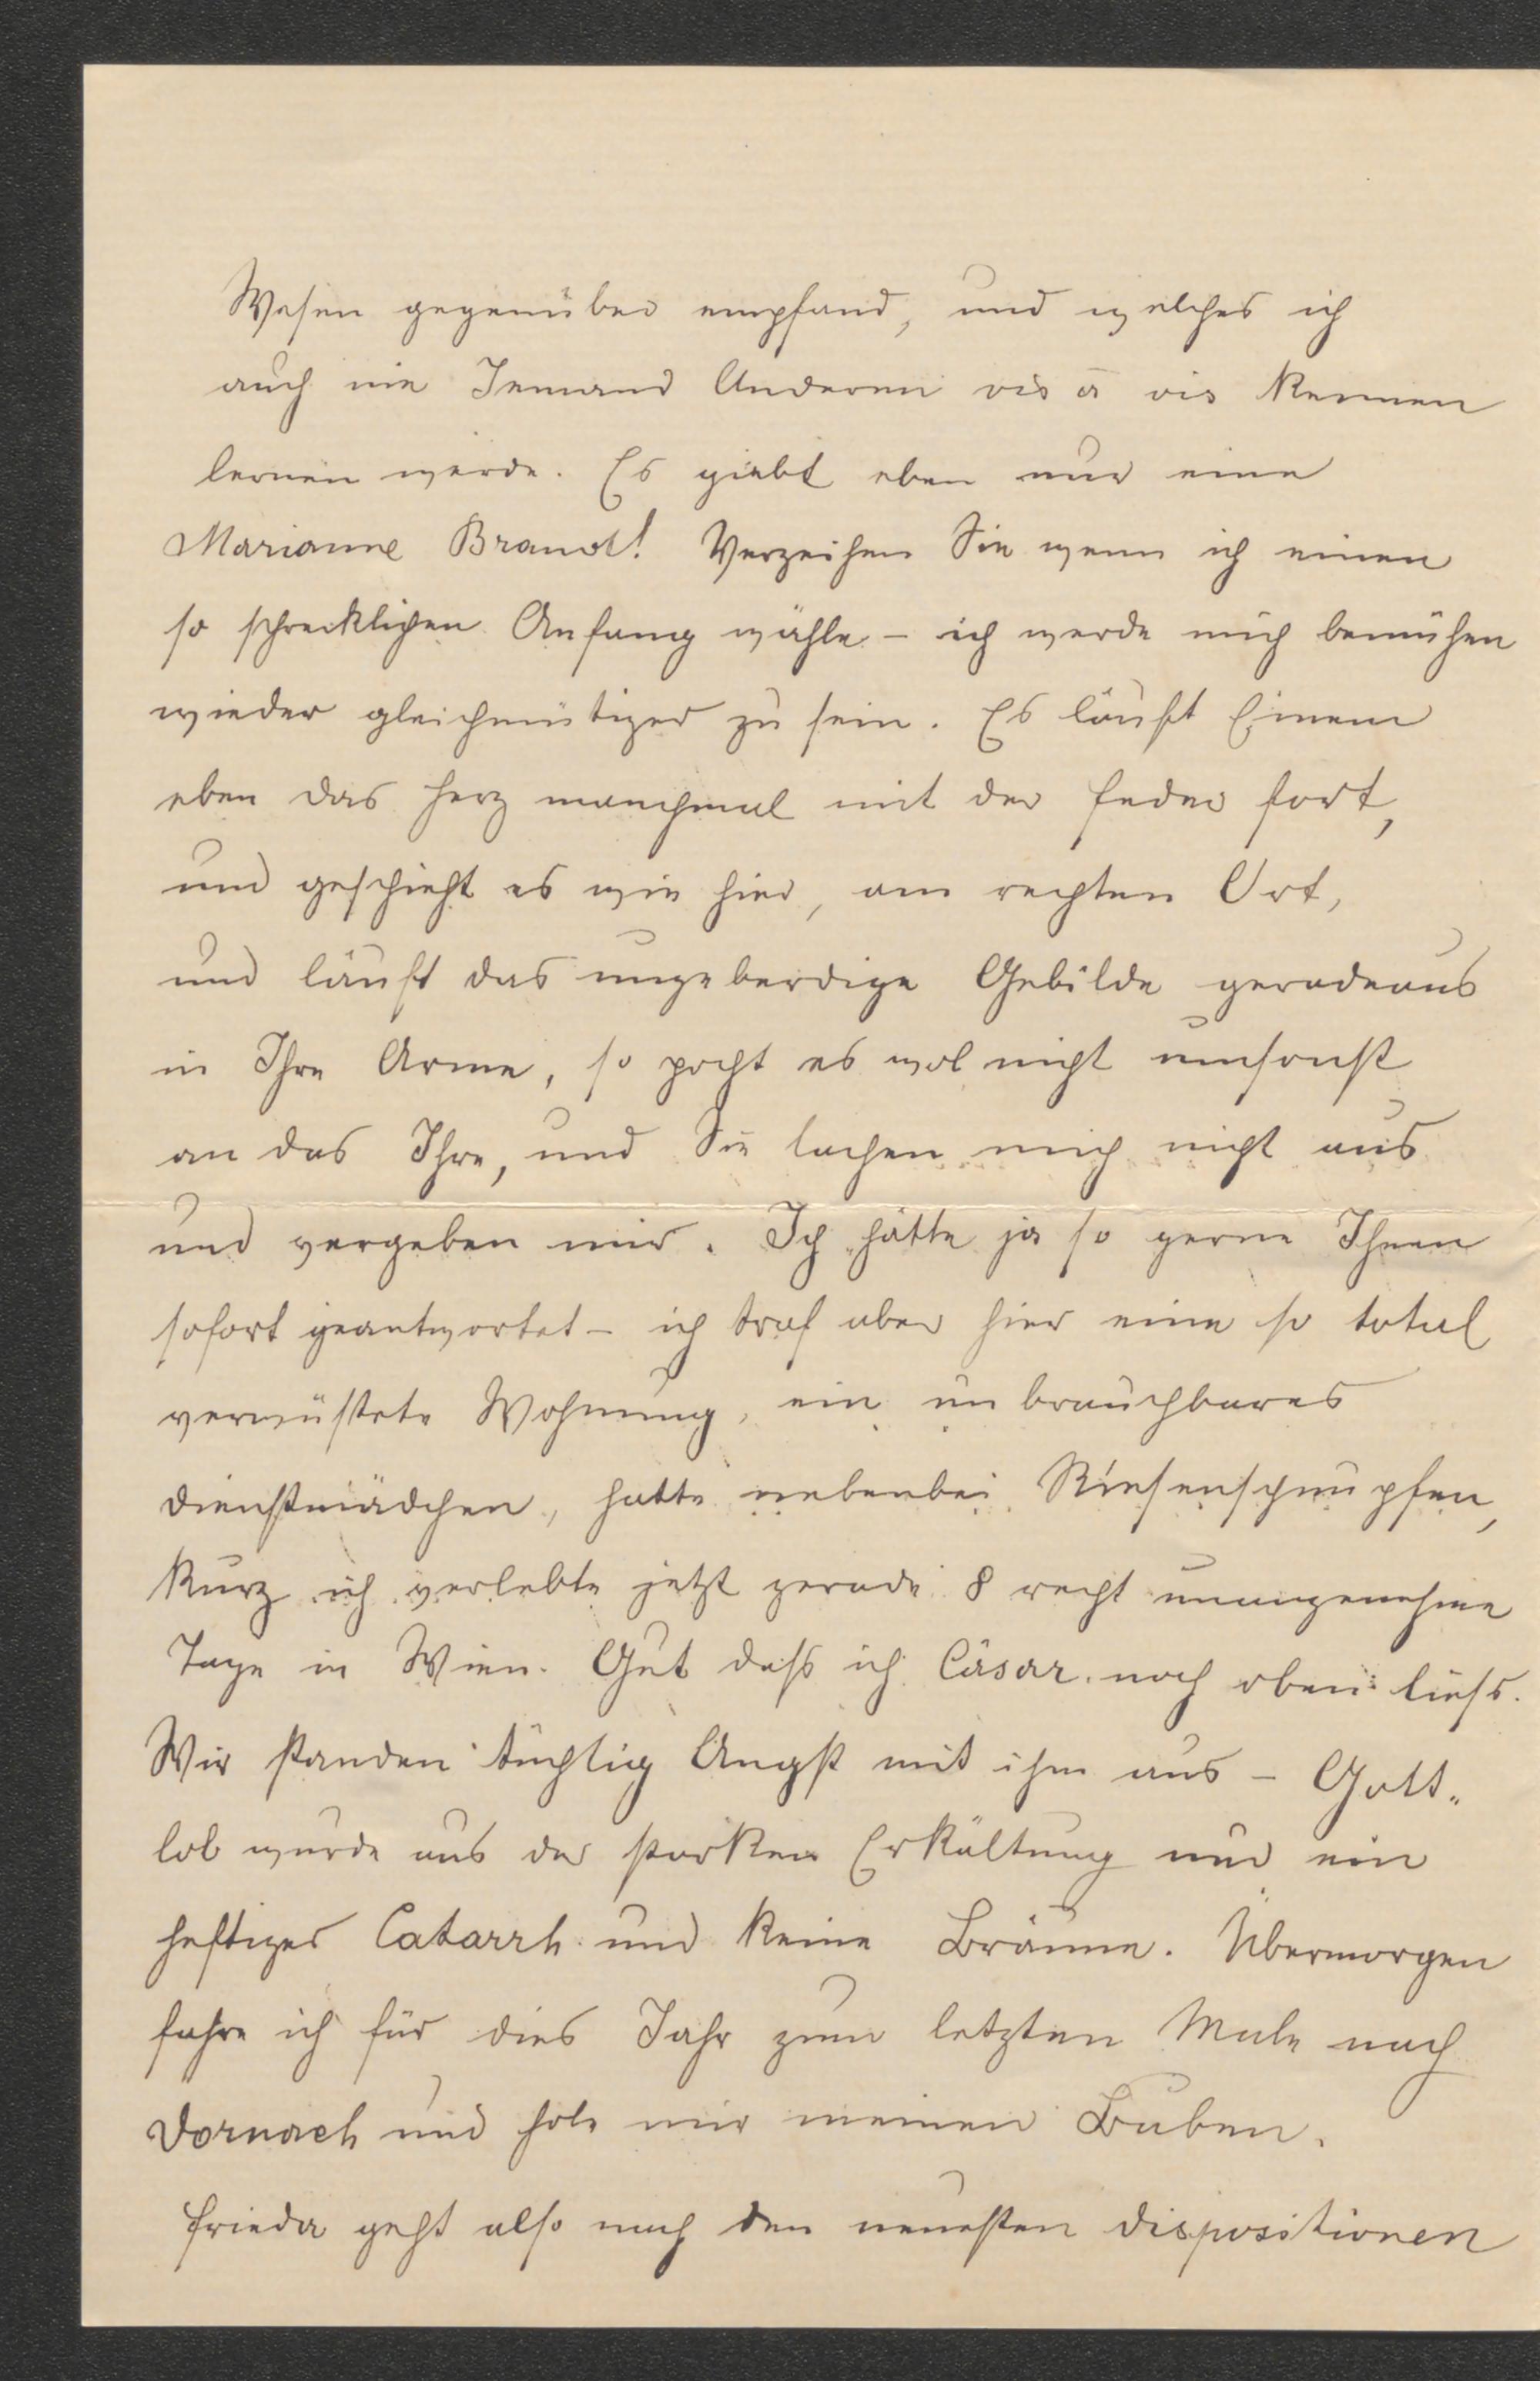 Wesen gegenüber empfand, und welches ich
auch nie Jemand Anderem vis à vis kennen
lernen werde. Es giebt eben nur eine
Marianne Brandt! Verzeihen Sie wenn ich einen
so schrecklichen Anfang wähle – ich werde mich bemühen
wieder gleichmütiger zu sein. Es läuft Einem
eben das Herz manchmal mit der Feder fort,
und geschieht es wie hier, am rechten Ort,
und läuft das ungeberdige Gebilde geradeaus
in Ihre Arme, so pocht es wol nicht umsonst
an das Ihre, und Sie lachen mich nicht aus
und vergeben mir. Ich hätte ja so gerne Ihnen
sofort geantwortet – ich traf aber hier eine so total
verwüstete Wohnung, ein unbrauchbares
Dienstmädchen, hatte nebenbei Riesenschnupfen,
kurz ich verlebte jetzt gerade 8 recht unangenehme
Tage in Wien. Gut dass ich Cäsar noch oben liess.
Wir standen tüchtig Angst mit ihm aus – Gott„
lob wurde aus der starken Erkältung nur ein
heftiger Catarrh und keine Bräune. Übermorgen
fahre ich für dies Jahr zum letzten Male nach
Dornach und hole mir meinen Buben.
Frieda geht also nach den neuesten Dispositionen